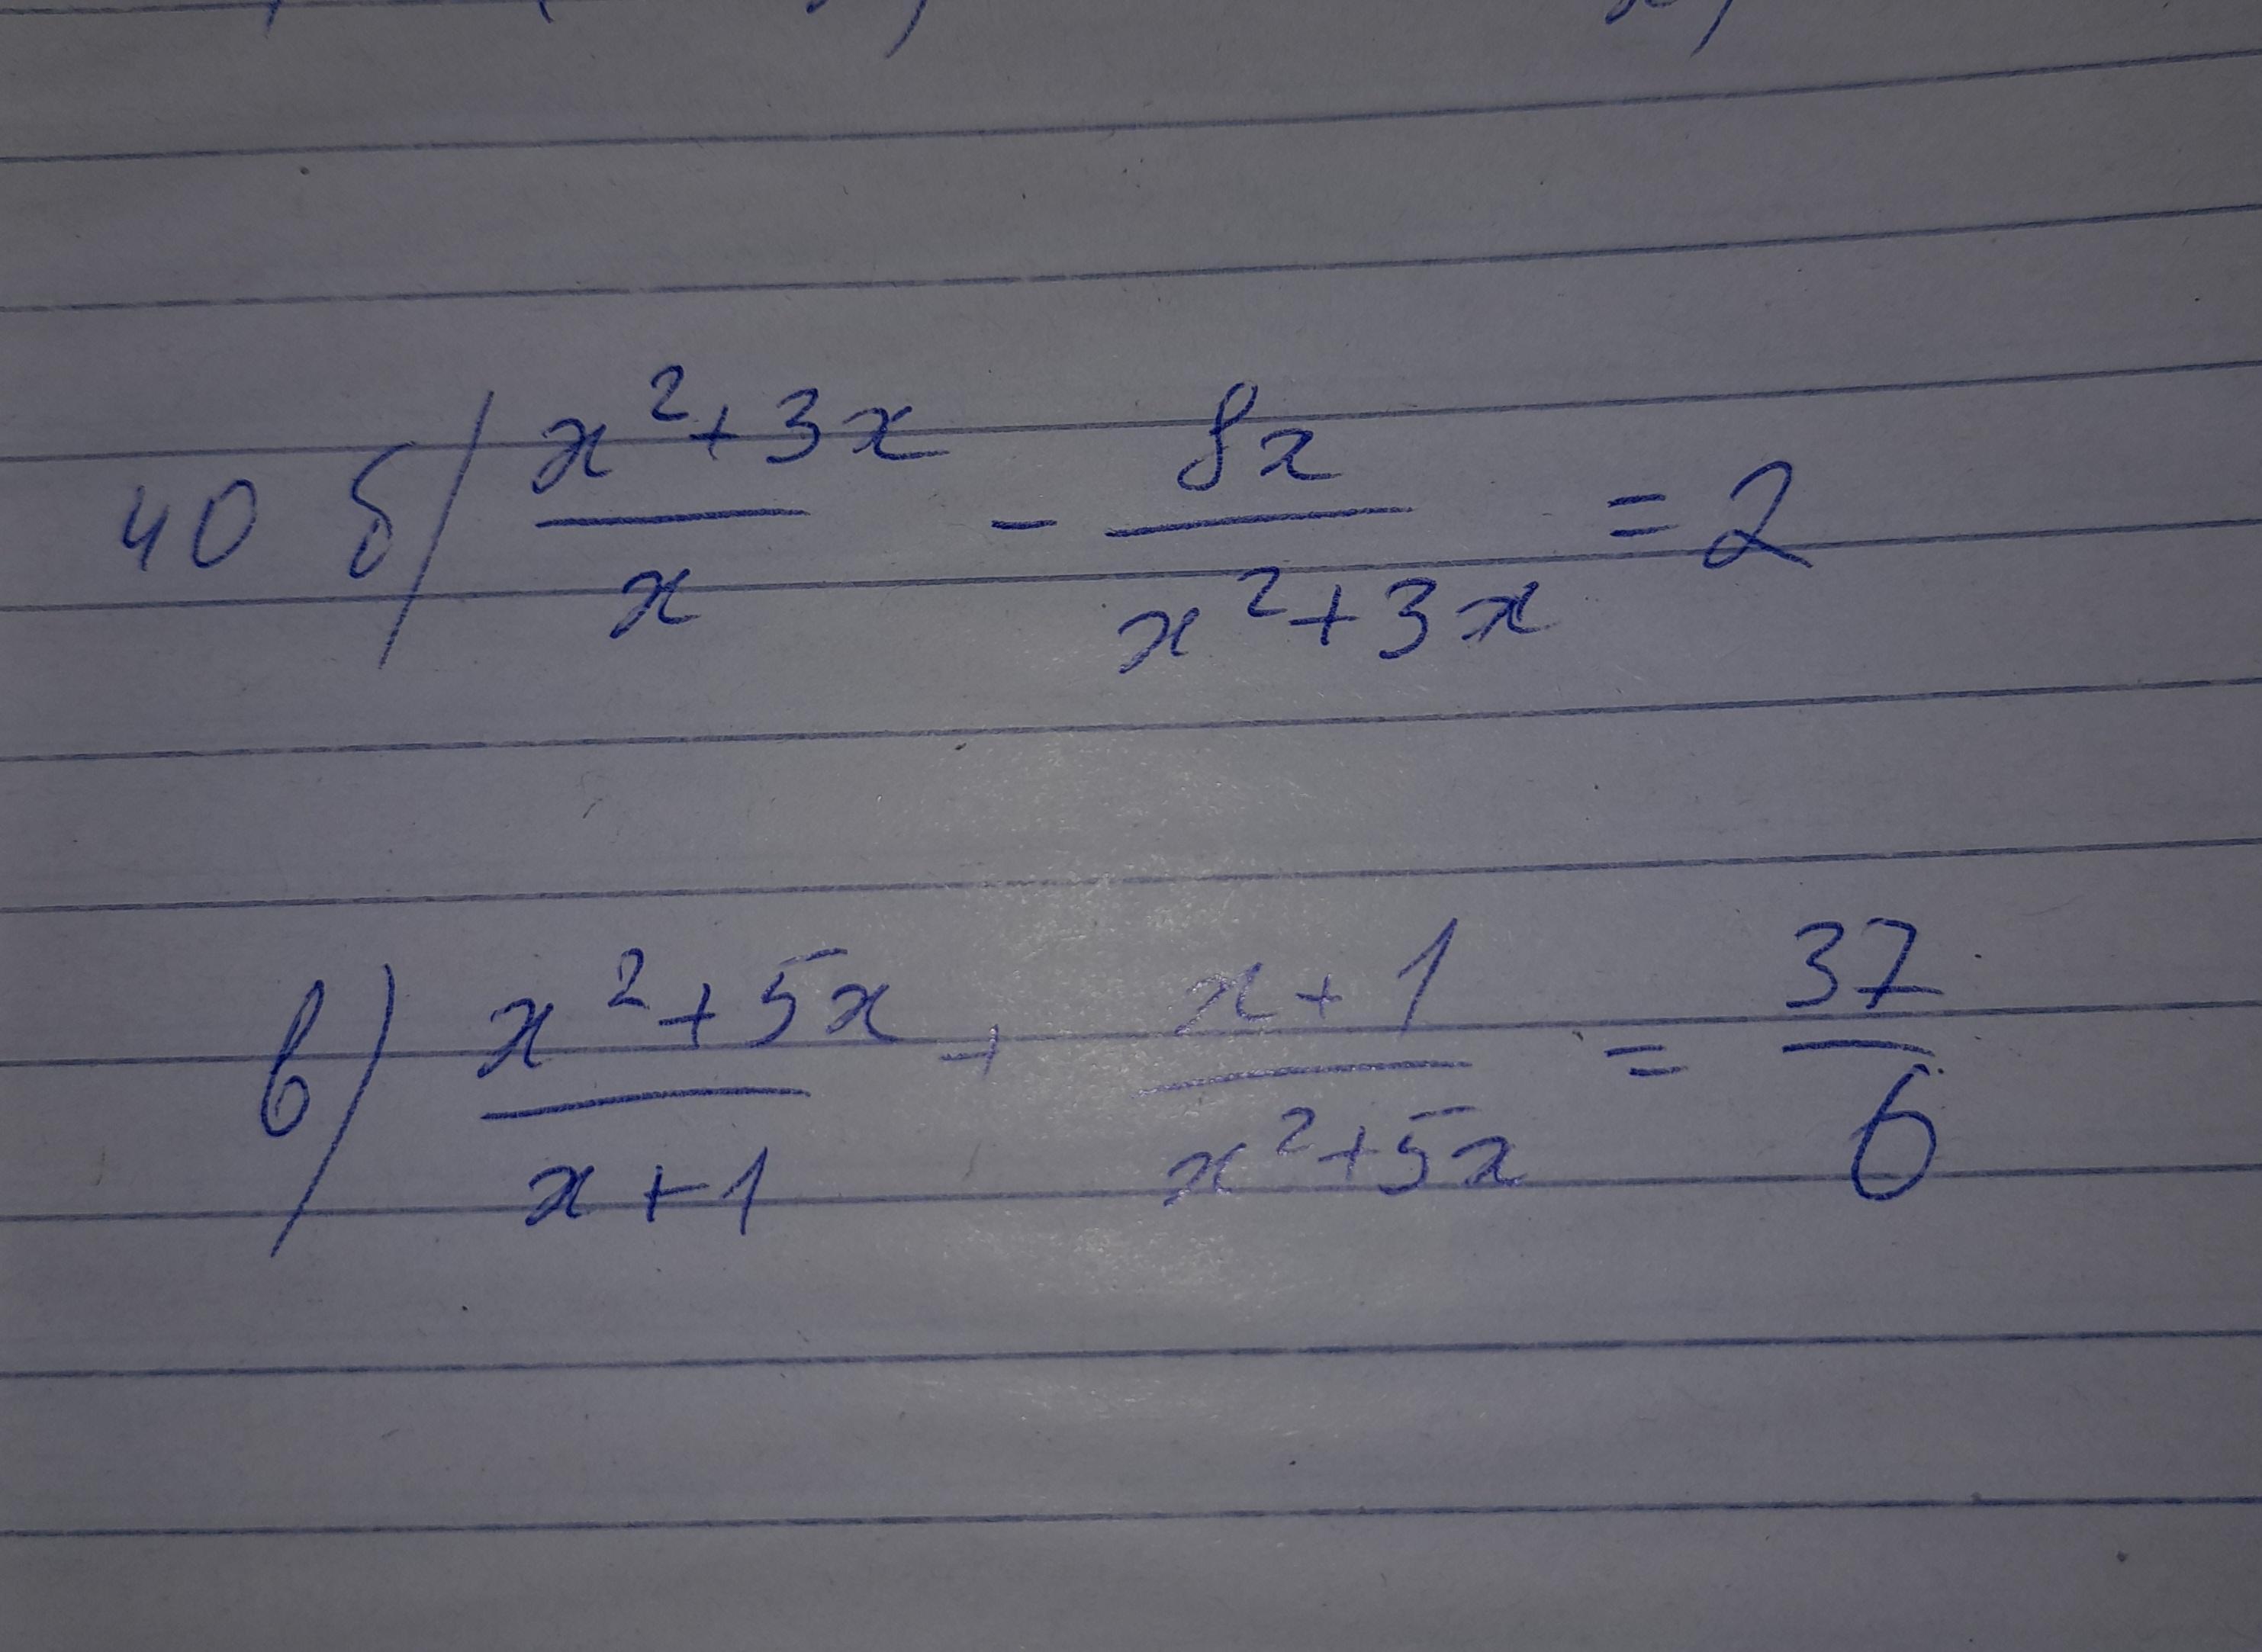 40 б) (x²+3x)/x - 8x/(x²+3x) = 2
в) (x²+5x)/(x+1) + (x+1)/(x²+5x) = 37/6